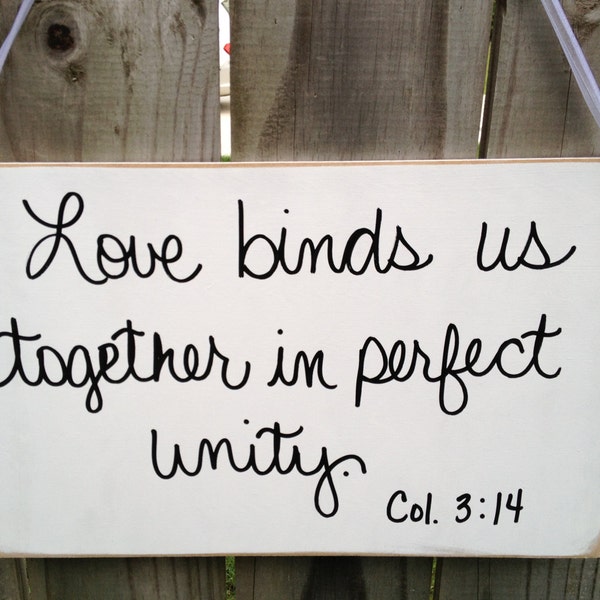 Love binds us
together in perfect
unity.
Col. 3:14